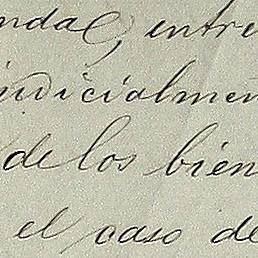 ndal, entre
judicialmen
de los bien
el caso de